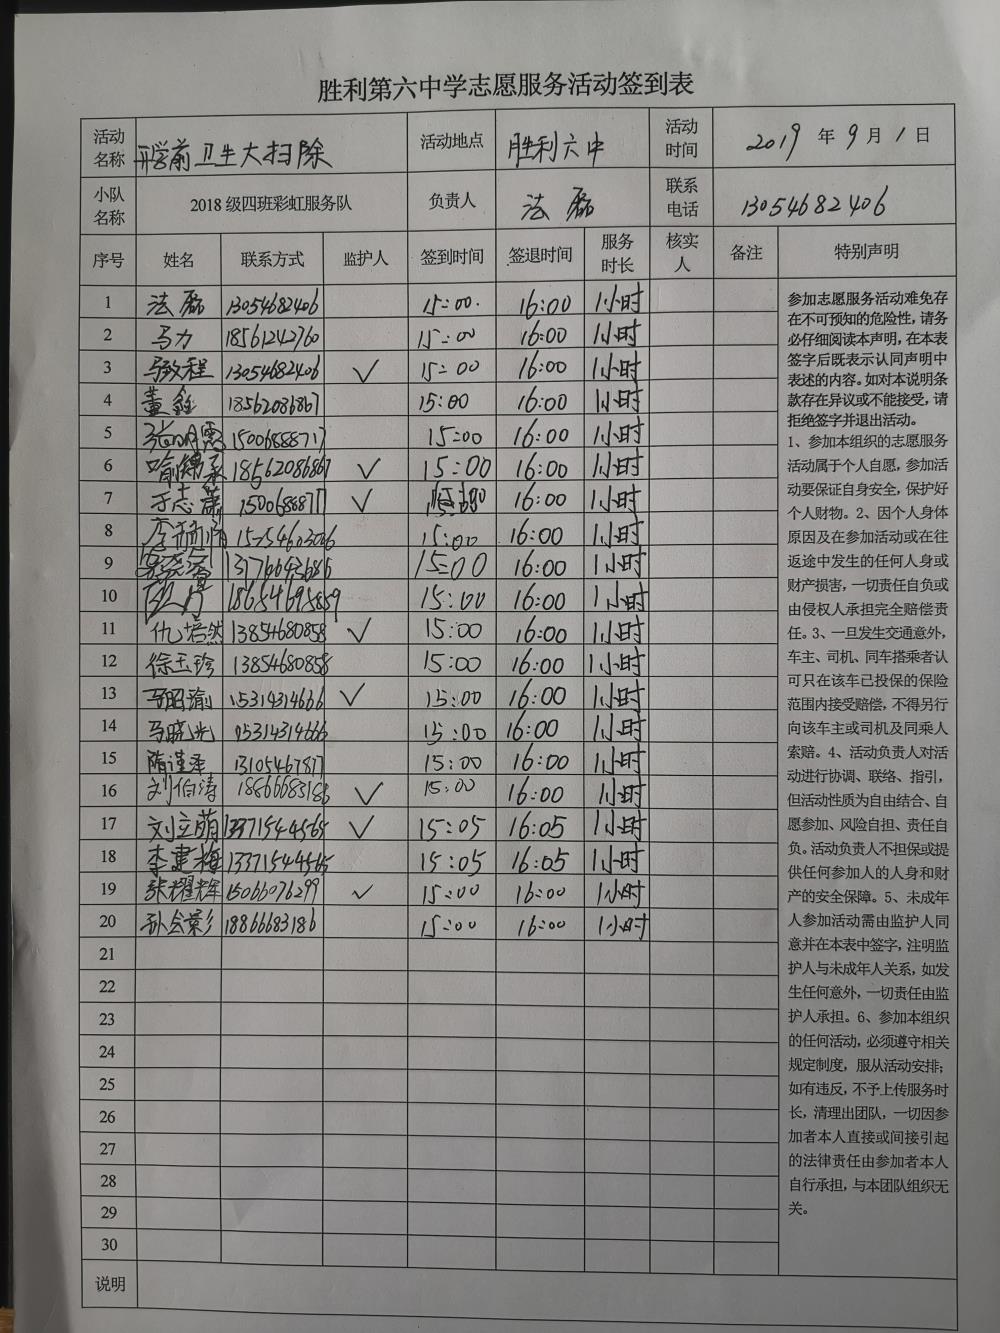 胜利第六中学志愿服务活动签到表
活动名称 开学前卫生大扫除 活动地点 胜利六中 活动时间 2019年9月1日
小队名称 2018级四班彩虹服务队 负责人 法磊 联系电话 13054682406
序号 姓名 联系方式 监护人 签到时间 签退时间 服务时长 核实人 备注 特别声明
1 法磊 13054682406 15:00 16:00 1小时
2 马力 18561242760 15:00 16:00 1小时
3 马致程 13054682406 ✓ 15:00 16:00 1小时
4 董鑫 18562086867 15:00 16:00 1小时
5 15006888717 15:00 16:00 1小时
6 18562086867 ✓ 15:00 16:00 1小时
7 于志 ✓ 16:00 1小时
8 15:00 16:00 1小时
9 15:00 16:00 1小时
10 18654695859 15:00 16:00 1小时
11 仇培然 13854680858 ✓ 15:00 16:00 1小时
12 徐玉珍 13854680858 15:00 16:00 1小时
13 马昭渝 15314314666 ✓ 15:00 16:00 1小时
14 马晓光 15314314666 15:00 16:00 1小时
15 隋谨泽 13105467877 15:00 16:00 1小时
16 刘伯涛 18866683186 ✓ 15:00 16:00 1小时
17 刘立萌 13371544565 ✓ 15:05 16:05 1小时
18 李建梅 13371544565 15:05 16:05 1小时
19 张耀辉 15066076299 ✓ 15:00 16:00 1小时
20 孙会彩 18866683186 15:00 16:00 1小时
21
22
23
24
25
26
27
28
29
30
说明
参加志愿服务活动难免存
在不可预知的危险性，请务
必仔细阅读本声明，在本表
签字后既表示认同声明中
表述的内容。如对本说明条
款存在异议或不能接受，请
拒绝签字并退出活动。
1、参加本组织的志愿服务
活动属于个人自愿，参加活
动要保证自身安全，保护好
个人财物。2、因个人身体
原因及在参加活动或在往
返途中发生的任何人身或
财产损害，一切责任自负或
由侵权人承担完全赔偿责
任。3、一旦发生交通意外，
车主、司机、同车搭乘者认
可只在该车已投保的保险
范围内接受赔偿，不得另行
向该车主或司机及同乘人
索赔。4、活动负责人对活
动进行协调、联络、指引，
但活动性质为自由结合、自
愿参加、风险自担、责任自
负。活动负责人不担保或提
供任何参加人的人身和财
产的安全保障。5、未成年
人参加活动需由监护人同
意并在本表中签字，注明监
护人与未成年人关系，如发
生任何意外，一切责任由监
护人承担。6、参加本组织
的任何活动，必须遵守相关
规定制度，服从活动安排；
如有违反，不予上传服务时
长，清理出团队，一切因参
加者本人直接或间接引起
的法律责任由参加者本人
自行承担，与本团队组织无
关。